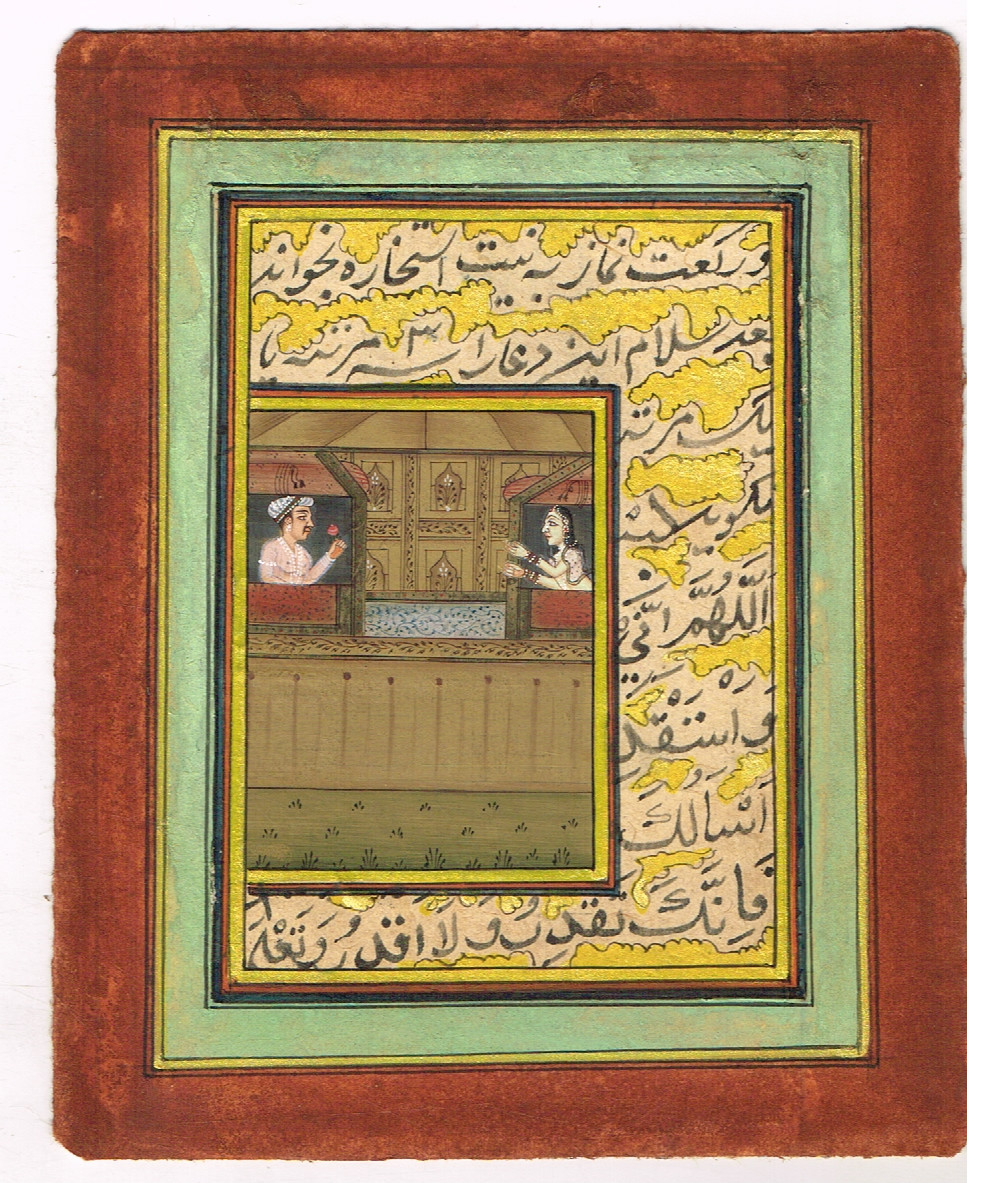 و رکعت نماز به نیت استخاره بخواند
بعد سلام این دعا را ۳ سه مرتبه یا
یک مرتبه
بگوید
اَللّٰهُمَّ انّی
و استقد
اَسْالُكَ
فَاِنَّكَ تَقْدِرُ وَلَا اَقْدِرُ وَتَعْلَ